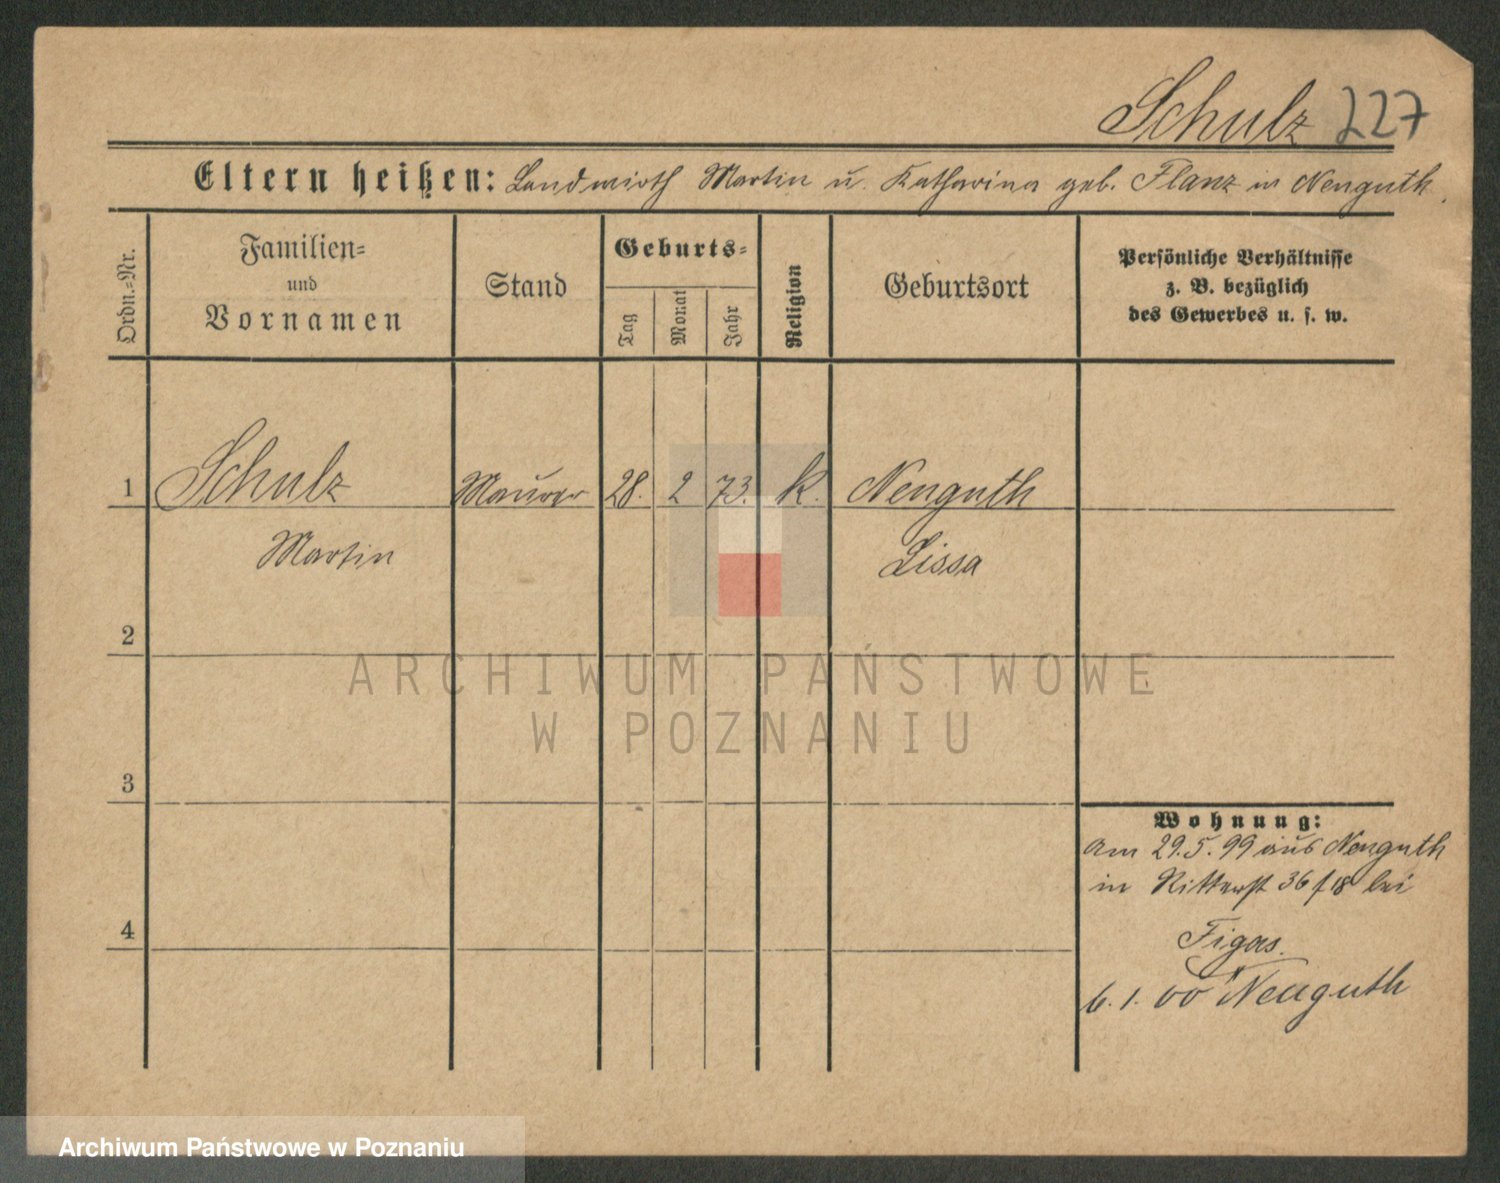 Schulz 227
Eltern heißen: Landwirth Martin u. Katharina geb. Flanz in Neuguth.
Ordn.-Nr.
Familien-
und
Vornamen
Stand
Geburts-
Tag
Monat
Jahr
Religion
Geburtsort
Persönliche Verhältnisse
z. B. bezüglich
des Gewerbes u. s. w.
1 Schulz Maurer 28. 2 73. k. Neuguth
Martin Lissa
2
ARCHIWUM PAŃSTWOWE
W POZNANIU
3
Wohnung:
am 29.5.99 aus Neuguth
in Ritterst 36 f 18 bei
4
Figas.
6.1.00 Neuguth
Archiwum Państwowe w Poznaniu